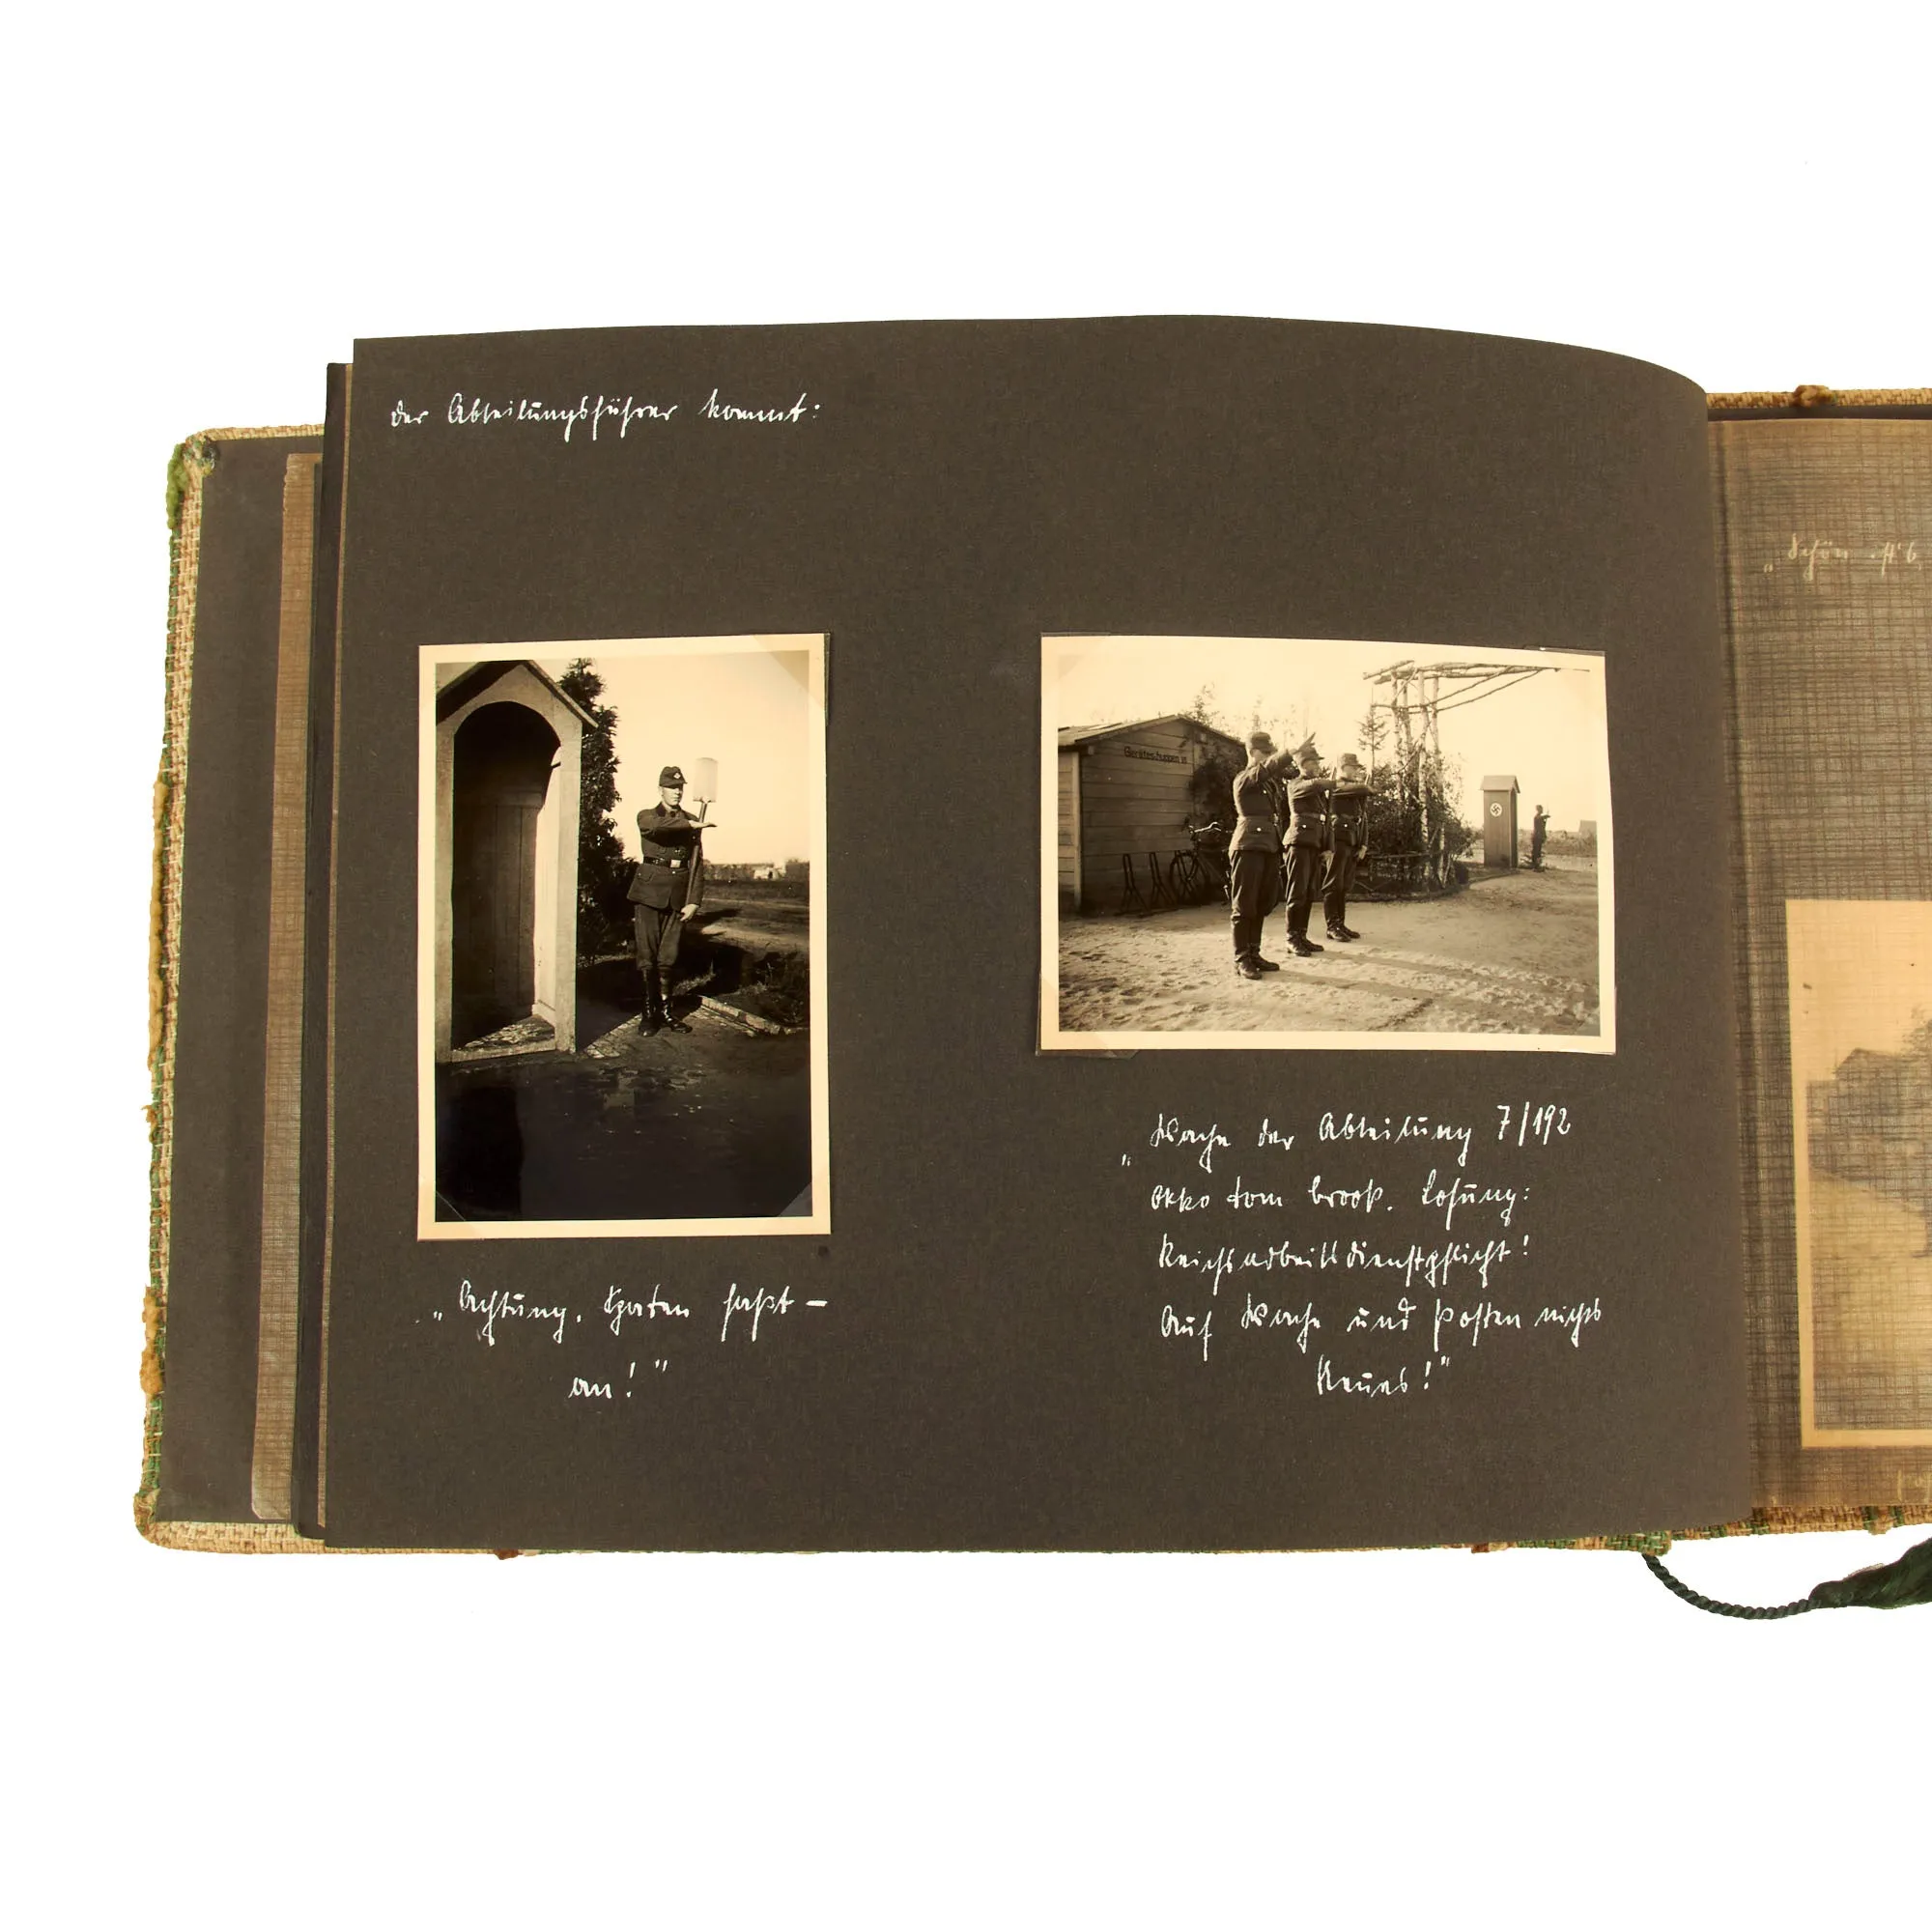 der Abteilungsführer kommt:
Geräteschuppen
"Achtung, Spaten faßt –
an!"
„Wache der Abteilung 7/192
Okko tom Brook. Losung:
Reichsarbeitsdienstpflicht!
Auf Wache und Posten nichts
Neues!"
„Schön